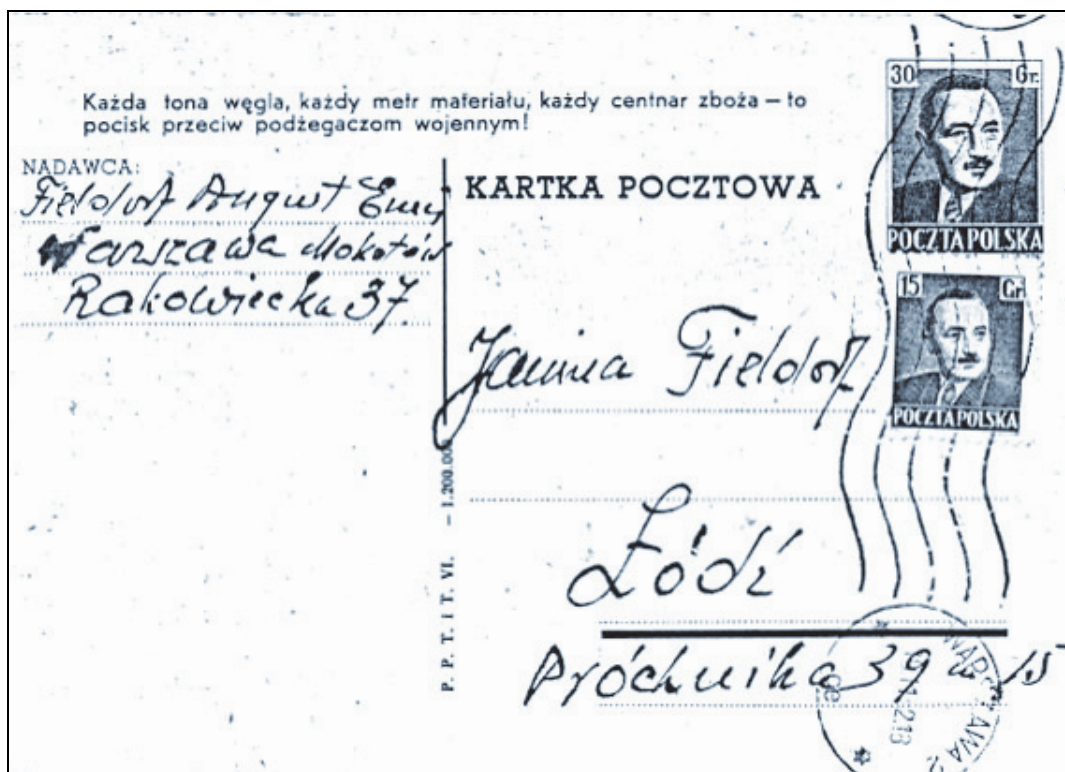 Każda tona węgla, każdy metr materiału, każdy centnar zboża — to
pocisk przeciw podżegaczom wojennym!
NADAWCA:
Fieldorf August Emil
Warszawa Mokotów
Rakowiecka 37.
KARTKA POCZTOWA
30 Gr.
POCZTA POLSKA
15 Gr
POCZTA POLSKA
Janina Fieldorf
Łódź
Próchnika 39 m 15
P. P. T. I T. VI. — 1.200.00
WARSZAWA 2